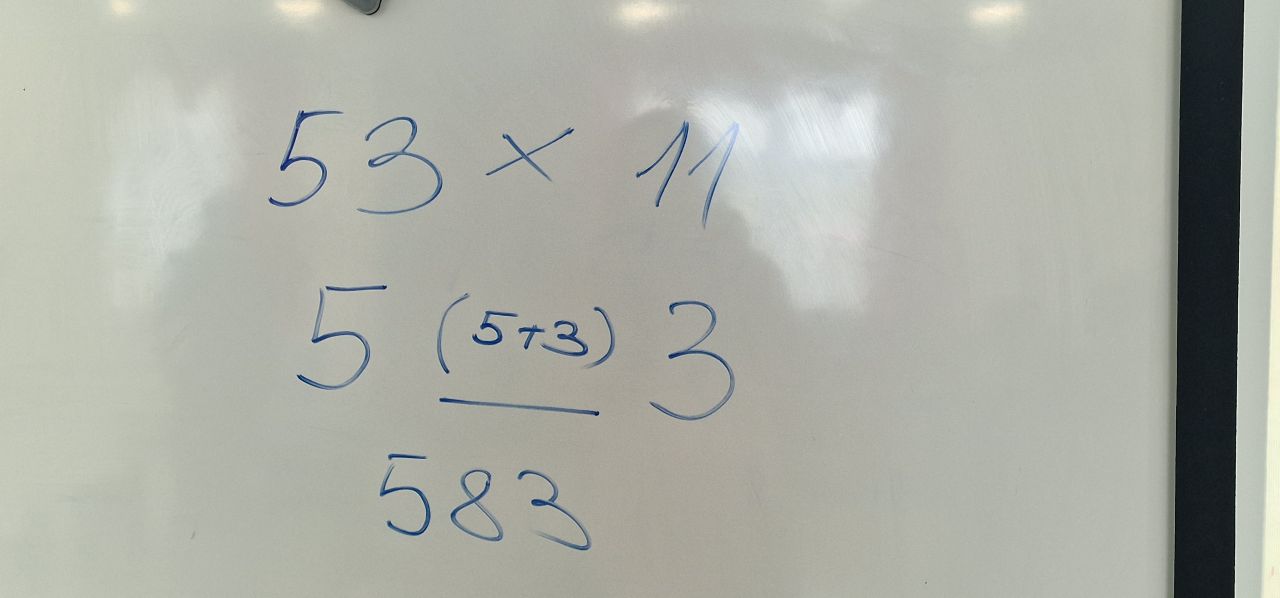 53 × 11
5 (5+3) 3
583